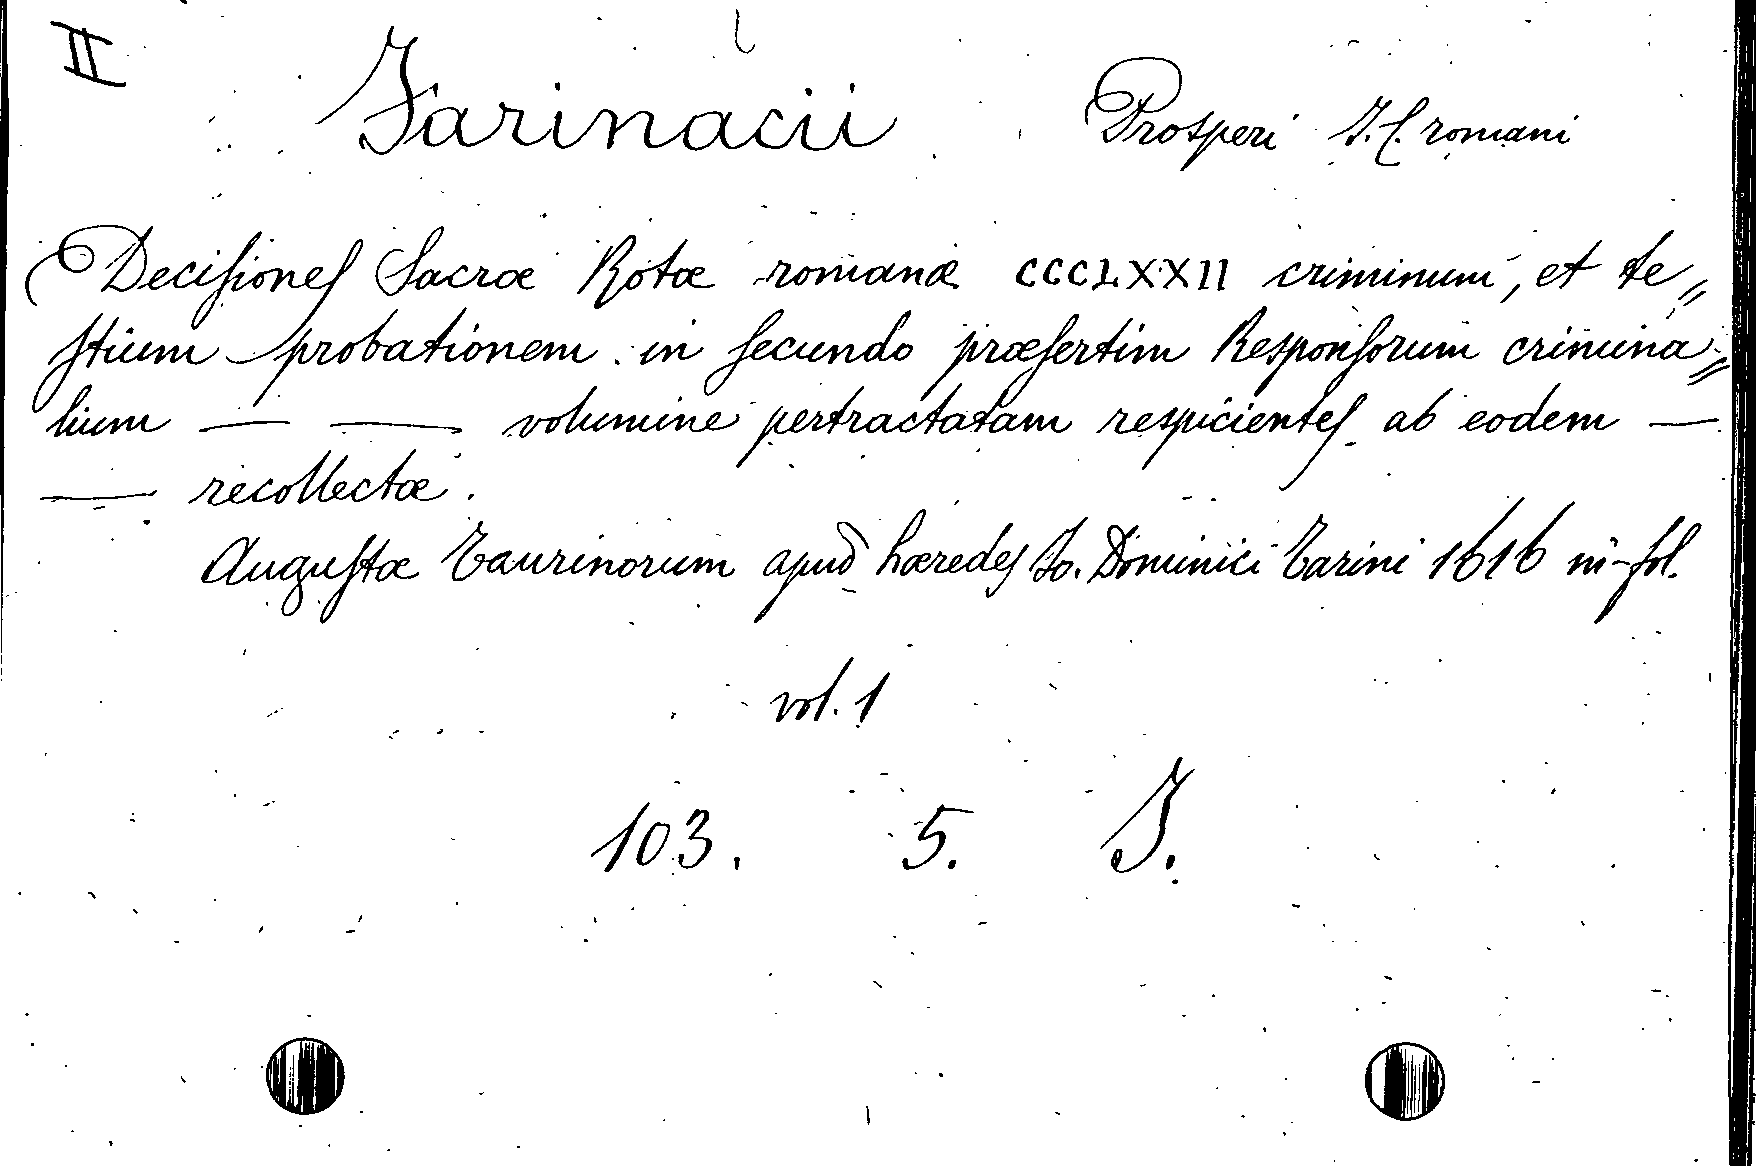 II
Farinacii Prosperi J. C. romani
Decisiones Sacræ Rotæ romanæ CCCLXXII criminum, et te„
stium probationem in secundo præsertim Responsorum crimina„
lium — — volumine pertractatam respicientes ab eodem —
— recollectæ.
Augustæ Taurinorum apud hæredes Jo. Dominici Tarini 1616 in-fol.
vol. 1
103. 5. J.